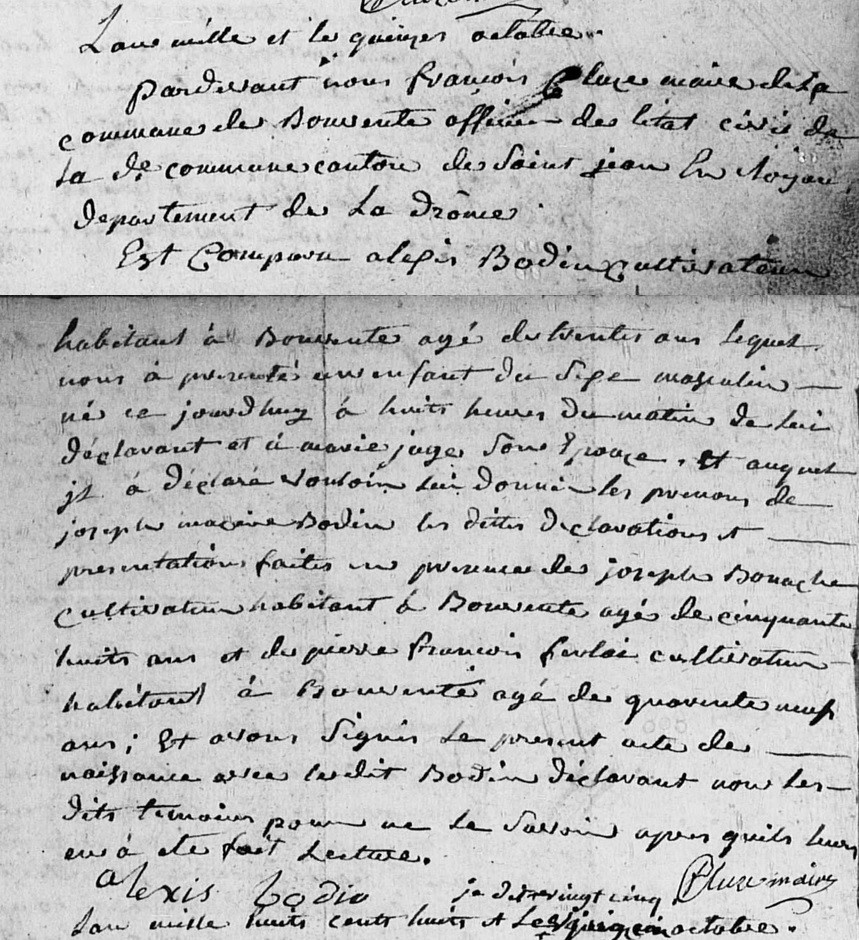 L'an mille et le quinzes octobre.
pardevant nous françois Cluze maire de la
commune de Bouvente officier de l'etat civil de
la de commune canton de Saint jean En Royan
departement de La drôme.
Est Comparu alexis Bodin cultivateur
habitant à Bouvente agé de trentes ans lequel
nous à presenté un enfant du sexe masculin
né ce jourdhuy à huits heures du matin de lui
déclarant et à marie juge son Epouze, et auquel
jl à déclaré vouloir lui donner les prenoms de
joseph Bodin les dittes declarations et
presentations faites en presence de joseph Bonache
cultivateur habitant à Bouvente agés de cinquante
huits ans et de pierre françois cultivateur
habitant à Bouvente agé de quarente neuf
ans; Et avons signés Le present acte de
naissance avec ledit Bodin déclarant non les
dits temoins pour ne Le savoir apres quils leurs
en à ete fait Lecture.
alexis bodin Cluze maire
je dis vingt cinq
L'an mille huits cents huits et Le octobre.